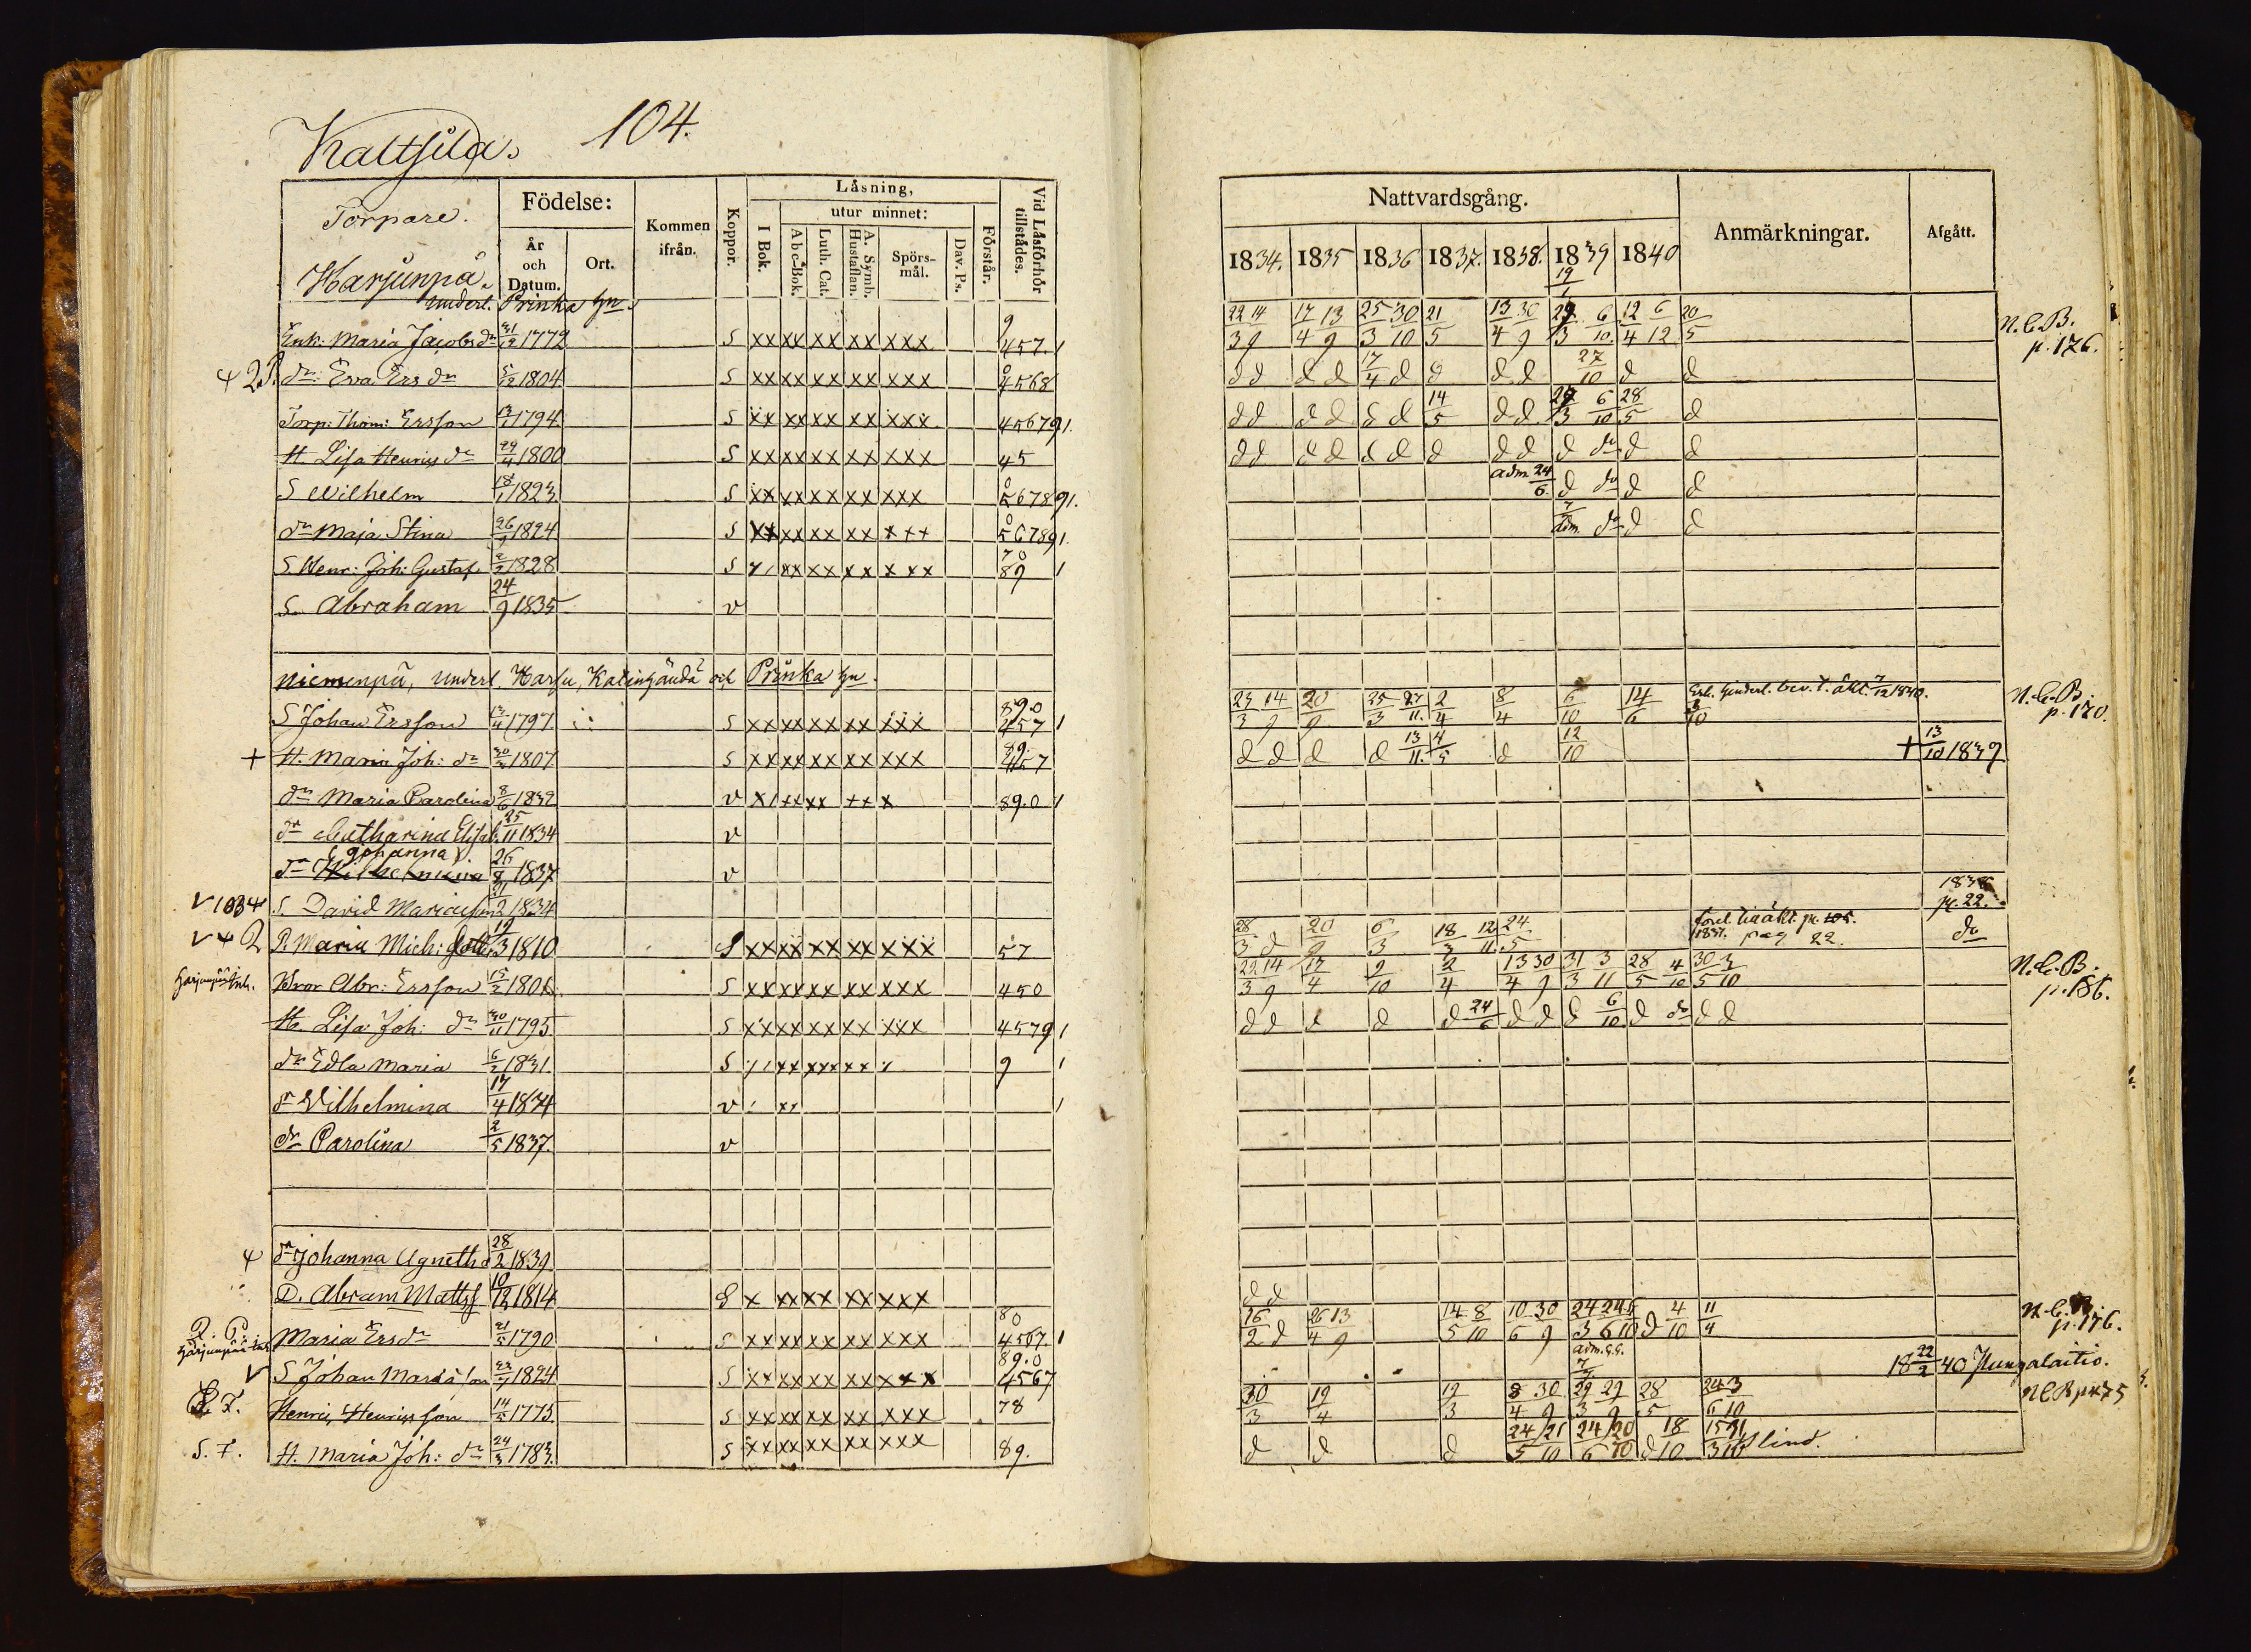 104.
Kaltsila.
Torpare.
Födelse:
Kommen ifrån.
Koppor.
Låsning,
utur minnet:
Vid Låsförhör tillstådes.
År och Datum.
Ort.
I Bok.
Abc-Bok.
Luth. Cat.
A. Symb. Hustaflan.
Spörs-mål.
Dav. Ps.
Förstår.
Harjunpä.
underl. Prinka hn.
Enk: Maria Jacobs dr 31/12 1772 S xx xx xx xx xxx 9 457. 1
dr Eva Ers dr 5/12 1804 S xx xx xx xx xxx 4568
Torp: Thom: Ersson 13/1 1794 S xx xx xx xx xxx 45679 1.
H. Lisa Henrics dr 29/4 1800 S xx xx xx xx xxx 45
S Wilhelm 18/1 1823 S xx xx xx xx xxx 0 56789 1.
dr Maja Stina 26/9 1824 S xx xx xx xx xxx 0 56789 1.
S. Henr: Joh: Gustaf. 2/2 1828 S xx xx xx xxx 70 89 1
S. Abraham 24/9 1835 v
Niemenpä, underl. Harsu, och Prinka hn.
S Johan Ersson 13/4 1797 S xx xx xx xx xxx 89.0 457 1
+ H. Maria Joh: dr 30/3 1807 S xx xx xx xx xxx 89. 457
dr Maria Carolina 8/6 1832 v 89.0 1
dr Catharina Elisab. 25/11 1834 v
Johanna
dr Wilhelmina 26/8 1837 v
v 1834 S. David Mariæson 21/2 1834
P. Maria Mich: dotter 19/3 1810 S xx xx xx xx xxx 57
Bror Abr: Ersson 15/2 1801 S xx xx xx xx xxx 450
H. Lisa Joh: dr 30/11 1795 S xx xx xx xx xxx 4579 1
dr Edla Maria 6/2 1831. S 9 1
dr Wilhelmina 17/4 1834 v 1
dr Carolina 2/5 1837. v
dr Johanna Agnetha 28/2 1839
D. Abram Mattss 10/12 1814 S x xx xx xx xxx
Maria Ers dr 21/5 1790 S xx xx xx xx xxx 80 4567. 1
v S Johan Mariæson 23/7 1824 S xx xx xx xx xxx 89.0 4567
Henric Henricsson 14/5 1775 S xx xx xx xx xxx 78
S. F. H. Maria Joh: dr 24/3 1783. S xx xx xx xx xxx 89.
Nattvardsgång.
Anmärkningar.
Afgått.
1834. 1835 1836 1837. 1838. 1839 1840
22/3 14/9 17/4 13/9 25/3 30/10 21/5 13/4 30/9 6/10 12/4 6/12 20/5 N.C.B. p. 176.
d d d d 17/4 d d d d 27/10 d d
d d d d d d 14/5 d d 6/10 28/5 d
d d d d d d d d d d do d d
adm. 24/6. d do d d
7/7 adm. do d d
23/3 14/9 20/9 25/3 27/11. 2/4 8/4 6/10 14/6 3/10 7/12 1840. N.C.B. p. 170.
d d d d 13/11. 4/5 d 12/10 + 13/10 1839
1838 p. 22.
28/3 d 20/9 6/3 18/3 12/11. 24/5 1837. pag 22. do
22/3 14/9 17/4 9/10 2/4 13/4 30/9 31/3 3/11 28/5 4/10 30/5 3/10 N.C.B. p. 186.
d d d d d 24/6 d d d 6/10 d do d d
d d
16/2 d 26/4 13/9 14/5 8/10 10/6 30/9 d 4/10 11/4 N.C.B. p. 176.
adm. G.G. 7/7 18 22/2 40 Pungalaitio.
30/3 19/4 19/3 8/4 30/9 29/3 29/9 28/5 24/6 3/10
d d d 24/5 21/10 24/6 20/10 d 18/10 blind.